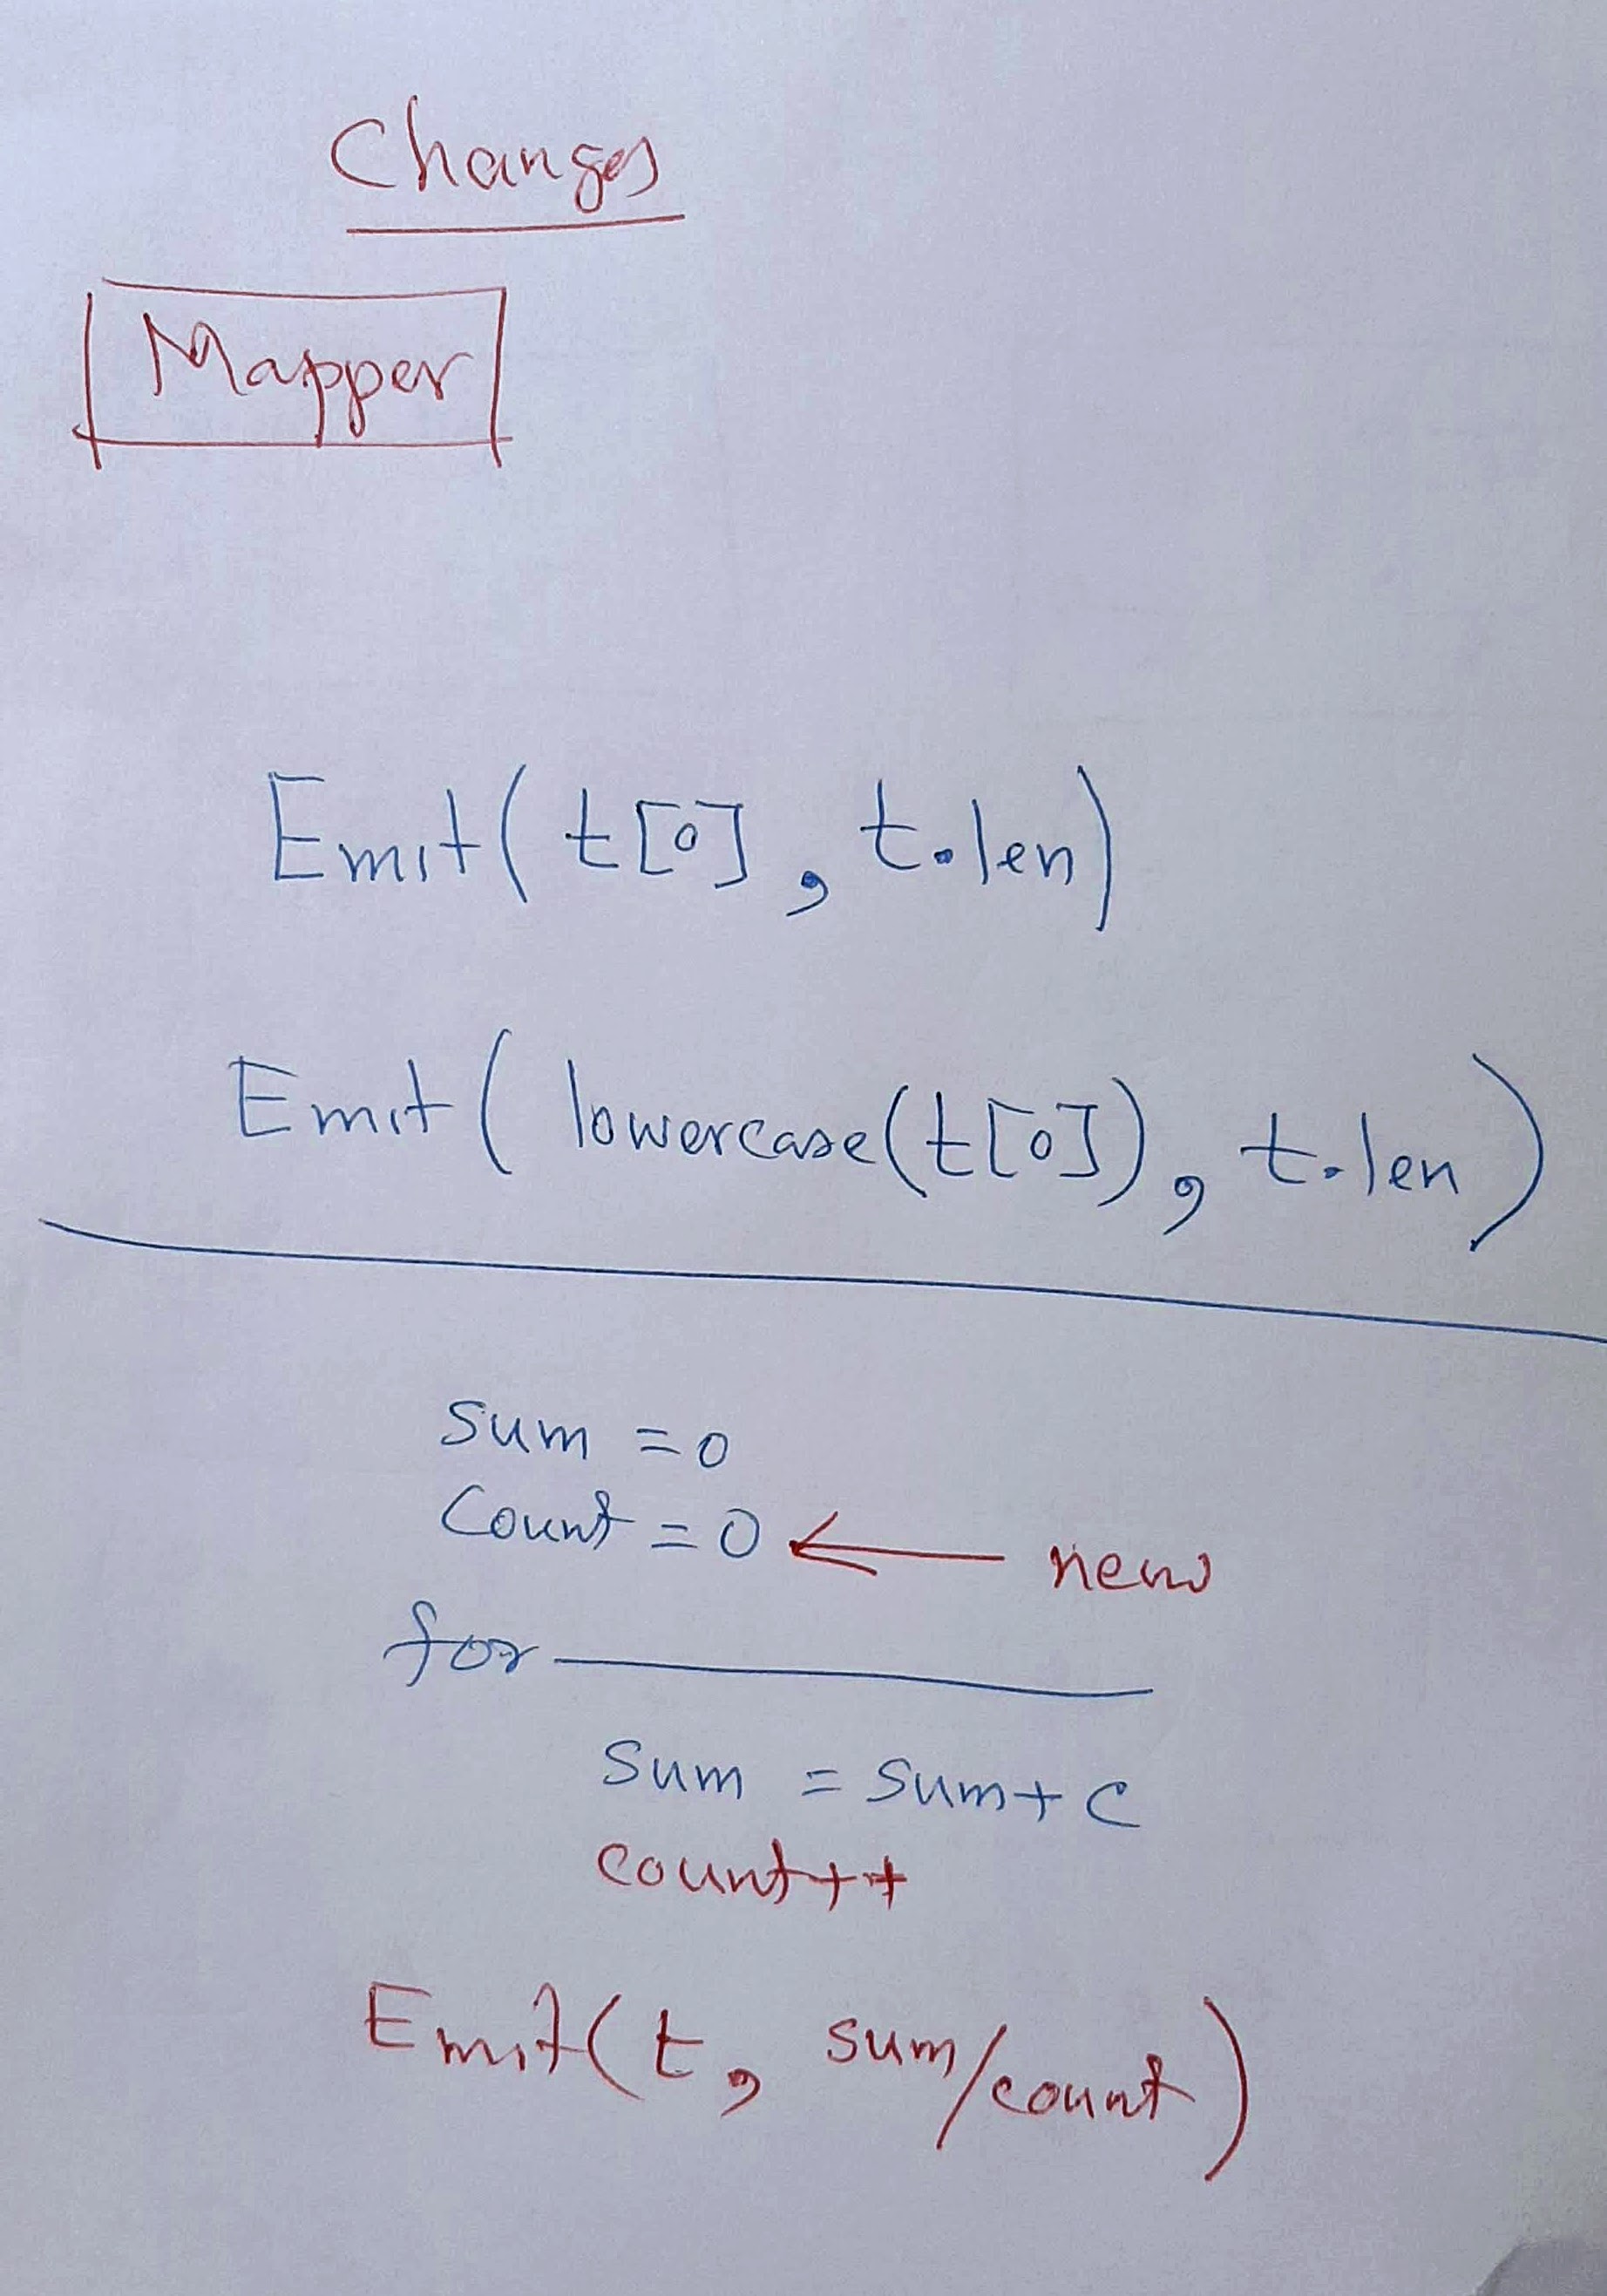 Changes
Mapper
Emit( t[0] , t.len)
Emit( lowercase(t[0]), t.len)
sum = 0
Count = 0 ← new
for
sum = sum + c
count++
Emit(t, sum/count)